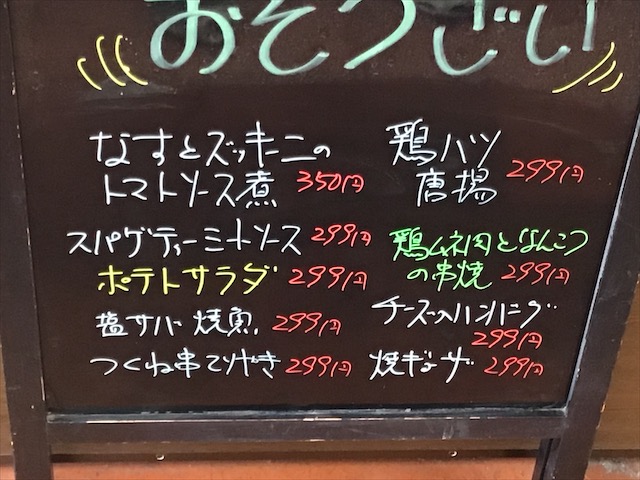 おそうざい
なすとズッキーニの
トマトソース煮 350円
スパゲティーミートソース 299円
ポテトサラダ 299円
塩サバ焼魚 299円
つくね串てりやき 299円
鶏ハツ
唐揚 299円
鶏ムネ肉となんこつ
の串焼 299円
チーズ入ハンバーグ
299円
焼ギョーザ 299円